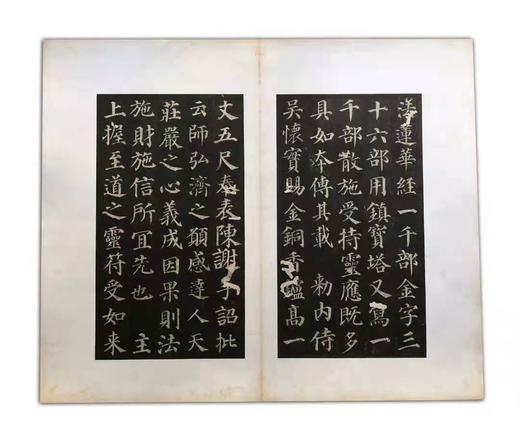 法蓮華經一千部金字三
十六部用鎮寶塔又寫一
千部散施受持靈應既多
具如本傳其載 勑内侍
吳懷實賜金銅香鑪高一
丈五尺奉表陳謝手詔批
云師弘濟之願感達人天
莊嚴之心義成因果則法
施財施信所宜先也 主
上握至道之靈符受如来